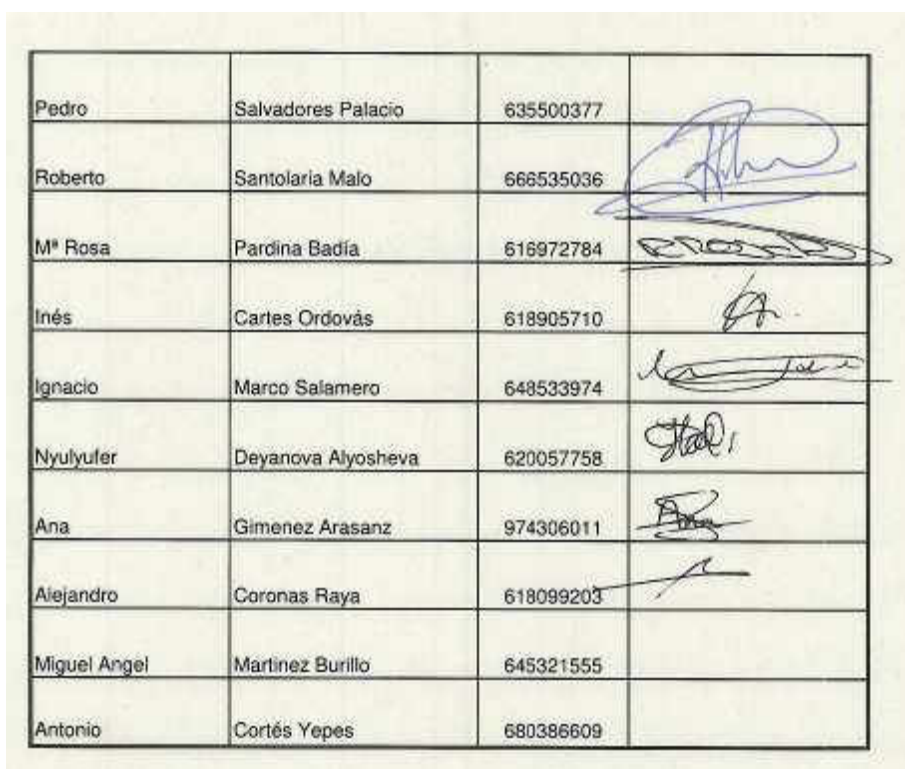 Pedro Salvadores Palacio 635500377
Roberto Santolaria Malo 666535036
Mª Rosa Pardina Badía 616972784
Inés Cartes Ordovás 618905710
Ignacio Marco Salamero 648533974
Nyulyufer Deyanova Alyosheva 620057758
Ana Gimenez Arasanz 974306011
Alejandro Coronas Raya 618099203
Miguel Angel Martinez Burillo 645321555
Antonio Cortés Yepes 680386609